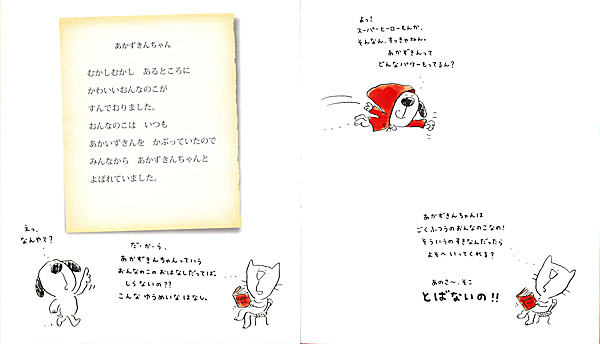 あかずきんちゃん
むかしむかし　あるところに
かわいいおんなのこが
すんでおりました。
おんなのこは　いつも
あかいずきんを　かぶっていたので
みんなから　あかずきんちゃんと
よばれていました。
えっ、
なんやて？
だ・か・ら、
あかずきんちゃんっていう
おんなのこのおはなしだってば。
しらないの？？
こんな ゆうめいなはなし。
よっ！
スーパーヒーローもんか。
そんなん、すっきゃねん。
あかずきんって
どんなパワーもってるん？
あかずきんちゃんは
ごくふつうのおんなのこなの！
そういうのすきなんだったら
よそへいってくれる？
あのさ〜、そこ
とばないの！！